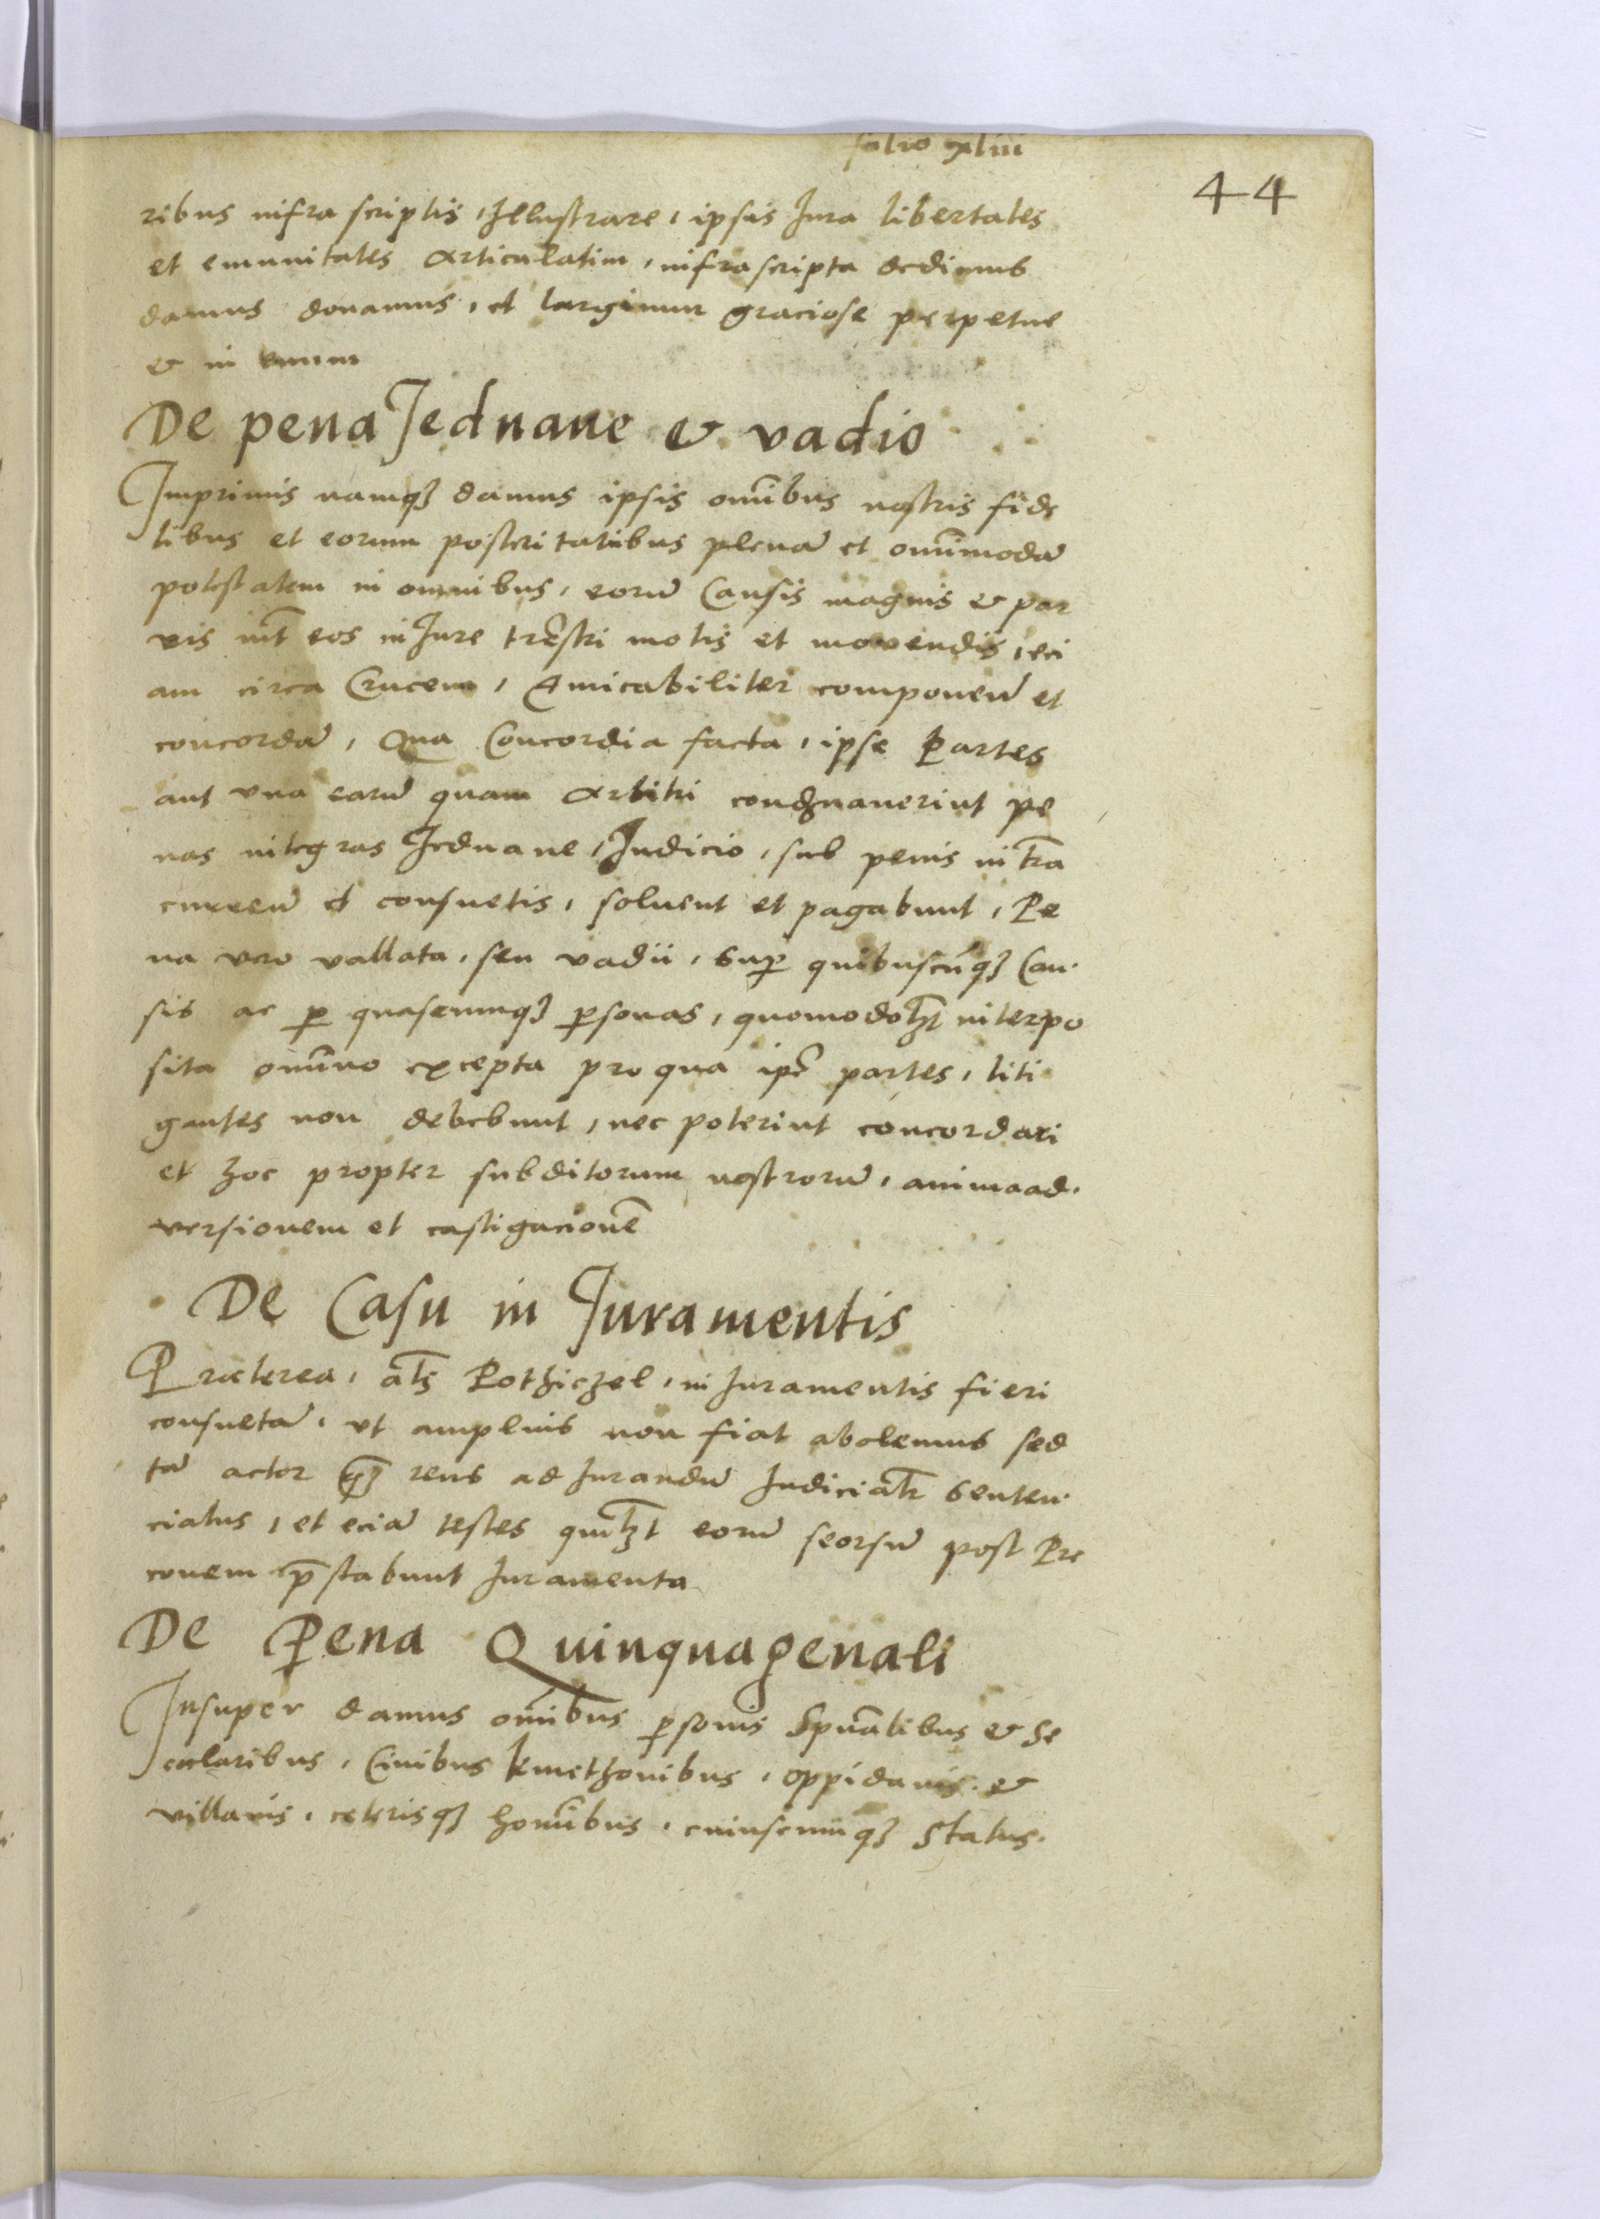 folio xliiii
44
ribus infra scriptis, Illustrare, ipsis Jura libertates
et emunitates articulatim, infrascripta dedimus
damus donamus, et largimur graciose perpetue
& in euum
De pena Jednane & vadio
Imprimis namqꝫ damus ipsis omībus nostris fide
libus et eorum posteritatibus plenā et omīmodā
potestatem in omnibus, eorū Causis magnis & par
uis int̄ eos in Jure trēstri motis et mouendis, eci
am circa Crucem, Amicabiliter componen̄ et
concordā, Qua Concordia facta, ipse Partes
aut vna earū quam arbitri condēnauerint pe
nas integras Jednane, Judicio, sub penis in tr̄a
curren̄ et consuetis, soluent et pagabunt, Pe
na vero vallata, seu vadii, suꝑ quibuscūqꝫ Cau
sis ac ꝑ quascumqꝫ ꝑsonas, quomodolꝫt interpo
sita omīno excepta pro qua ipē partes, liti
gantes non debebunt, nec poterint concordari
et hoc propter subditorum nostrorū, animaad
uersionem et castigacionē
De Casu in Juramentis
Præterea, al̄s Pothichel, in Juramentis fieri
consuetā, vt amplius non fiat abolemus sed
tā actor qꝫ reus ad Jurandū Judicial̄r senten
ciatus, et eciā testes quilꝫt eorū seorsū post Pre
conem p̄stabunt Juramenta
De Pena Quinquagenali
Insuper damus omībus ꝑsonis Spūalibus & Se
cularibus, Ciuibus kmethonibus, oppidanis &
villanis, ceterisqꝫ homībus, cuiuscumqꝫ Status